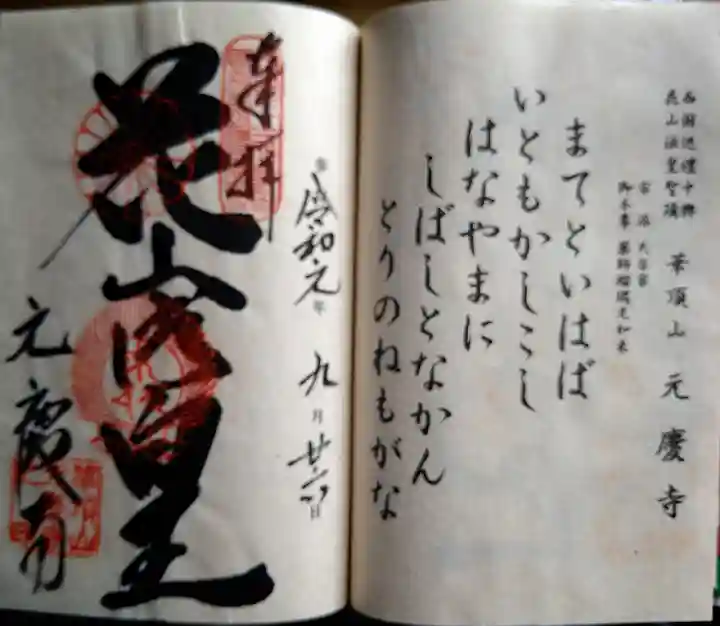 西国巡禮中興
花山法皇御落頂 華頂山 元慶寺
宗派 天台宗
御本尊 薬師瑠璃光如来
まてといはば
いともかしこし
はなやまに
しばしとなかん
とりのねもがな
奉拝
令和元年 九月廿六日
花山法皇
元慶寺